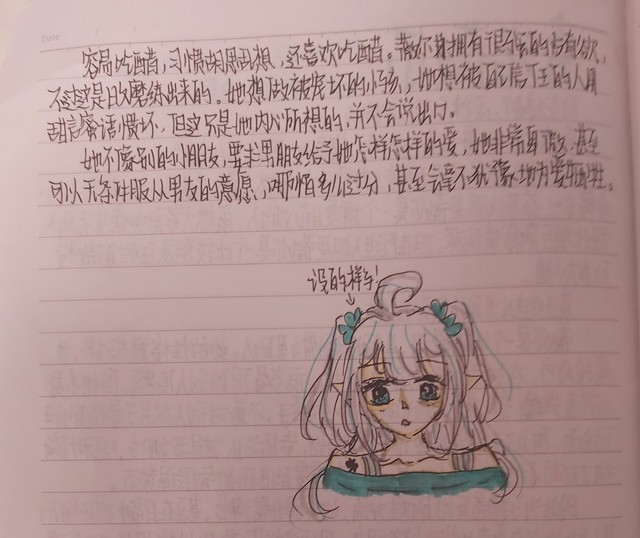 容易吃醋，习惯胡思乱想，还喜欢吃醋。 拥有很 的占有欲，
不 这是日以磨练出来的。她想做被宠坏的小孩，她想被自己信任的人用
甜言蜜语惯坏，但这只是她内心所想的，并不会说出口。
她不像别的小朋友，要求男朋友给予她怎样怎样的爱，她非常卑微，甚至
可以无条件服从男友的意愿，哪怕多么过分，甚至会毫不犹豫地为爱牺牲。
设的样子!